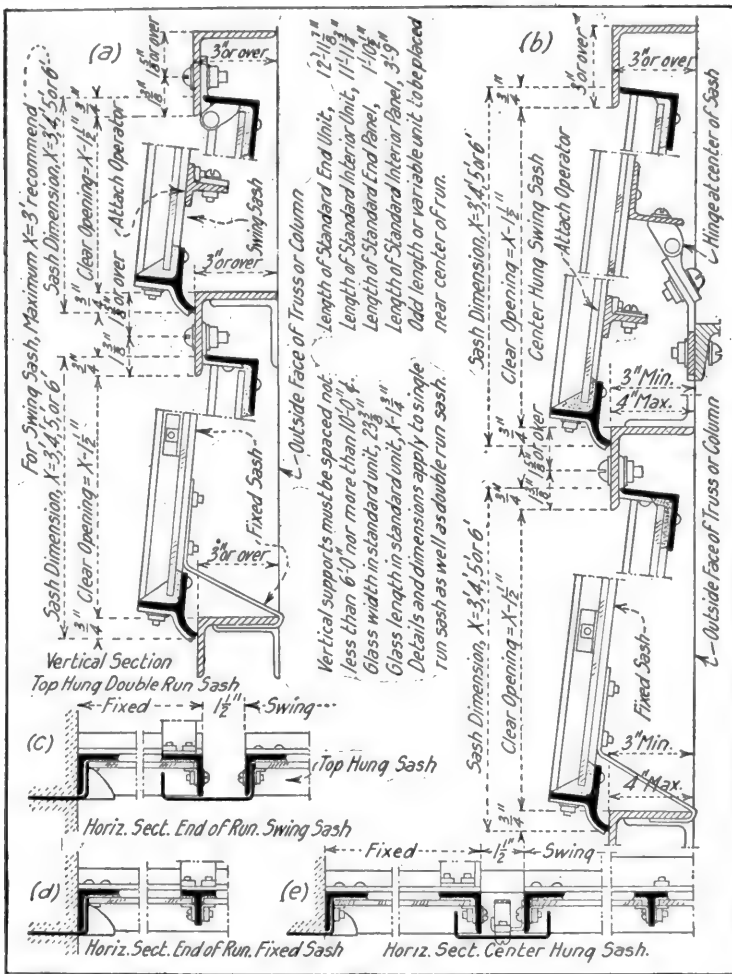 (a)
3"or over
1 5/8" or over
1 3/8"
3/4"
For Swing Sash, Maximum X=3' recommend
Sash Dimension, X=3,'4,'5,'or 6'
Clear Opening=X-1 1/2"
Attach Operator
Swing Sash
3"or over
3/4"
1 5/8" or over
1 3/8"
3/4"
Sash Dimension, X=3,'4,'5,'or 6'
Clear Opening=X-1 1/2"
Fixed Sash
3"or over
3/4"
Outside Face of Truss or Column
Vertical Section
Top Hung Double Run Sash
Length of Standard End Unit,
Length of Standard Interior Unit, 11'-11 3/4"
Length of Standard End Panel,
Length of Standard Interior Panel, 3'-9"
Odd length or variable unit to be placed
near center of run.
Vertical supports must be spaced not
less than 6'-0" nor more than 10'-0"
Glass width in standard unit, 23 3/8"
Glass length in standard unit, X-1 3/4"
Details and dimensions apply to single
run sash as well as double run sash.
(b)
3"or over
3"or over
3/4"
Sash Dimension, X=3,'4,'5,'or 6'
Clear Opening=X-1 1/2"
Center Hung Swing Sash
Attach Operator
Hinge at center of Sash
3"Min.
4"Max.
3/4"
1 5/8" or over
3/8"
3/4"
Sash Dimension, X=3,'4,'5,'or 6'
Clear Opening=X-1 1/2"
Fixed Sash
3"Min.
4"Max.
3/4"
Outside Face of Truss or Column
(c)
Fixed
1 1/2"
Swing
Top Hung Sash
Horiz. Sect. End of Run. Swing Sash
(d)
Horiz. Sect. End of Run. Fixed Sash
(e)
Fixed
1 1/2"
Swing
Horiz. Sect. Center Hung Sash.